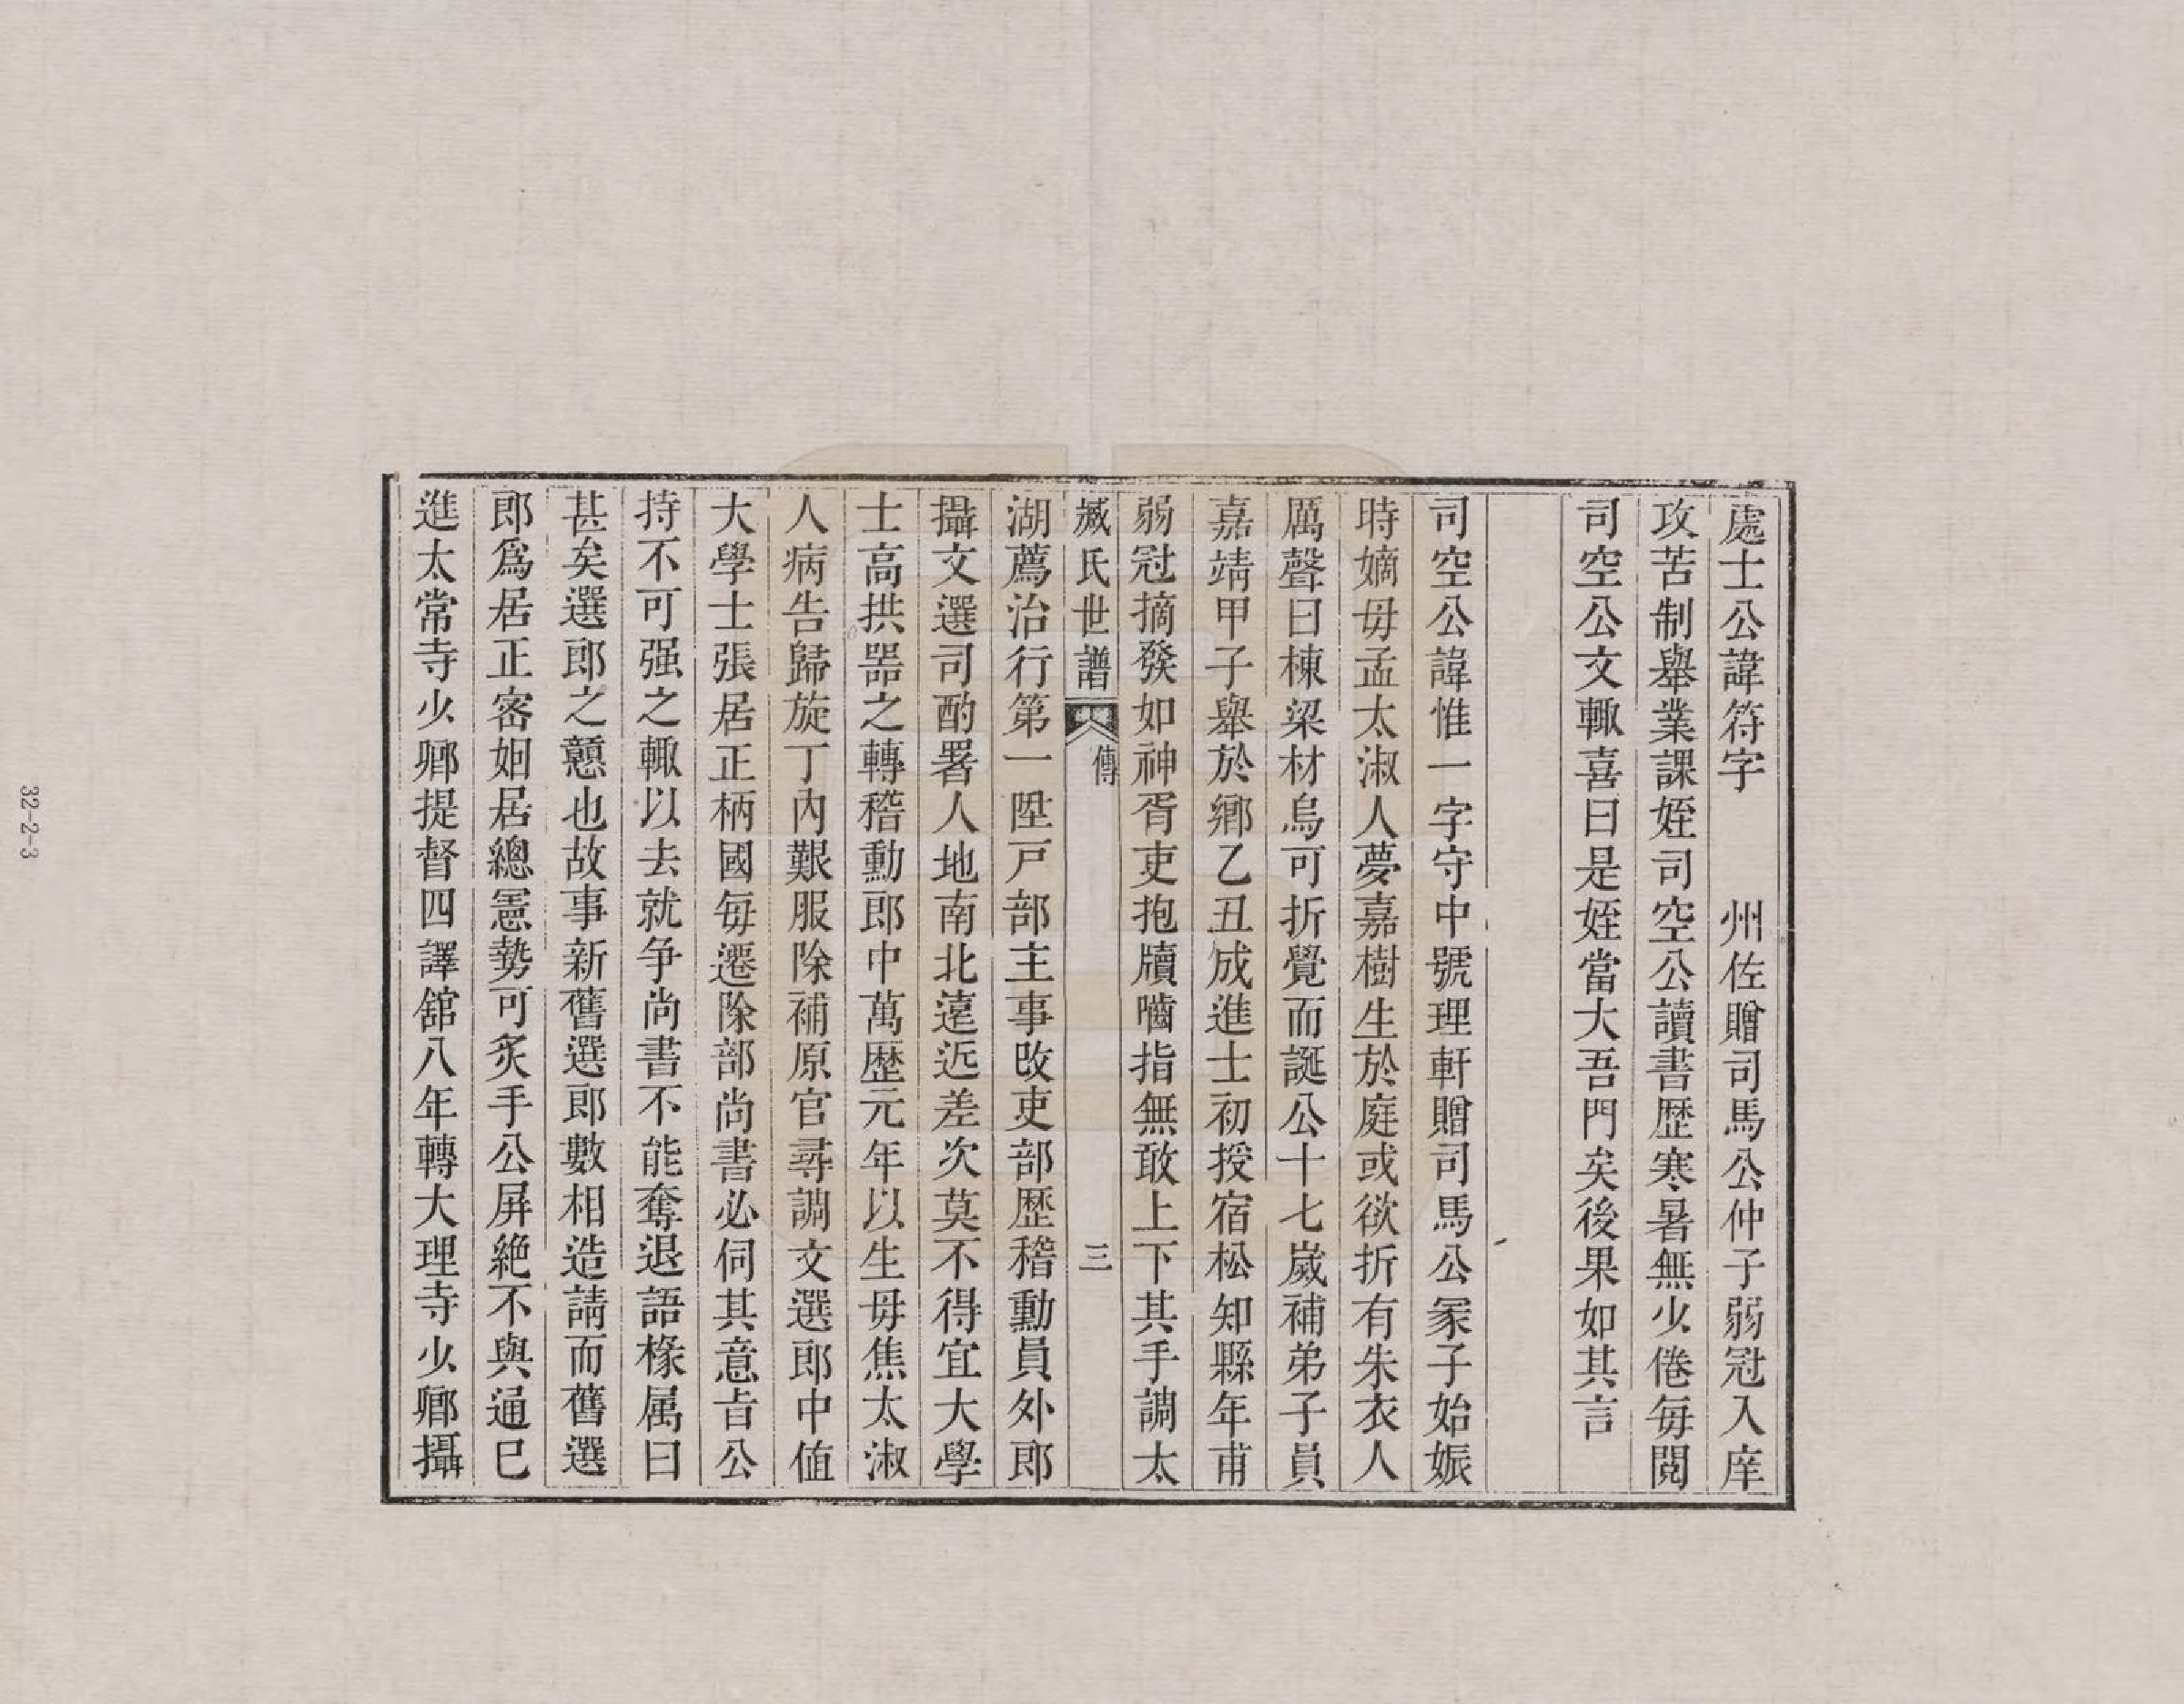 處士公諱符字　　州佐贈司馬公仲子弱冠入庠
攻苦制舉業課姪司空公讀書歷寒暑無少倦每閱
司空公文輙喜曰是姪當大吾門矣後果如其言
司空公諱惟一字守中號理軒贈司馬公冢子始娠
時嫡母孟太淑人夢嘉樹生於庭或欲折有朱衣人
厲聲曰棟梁材烏可折覺而誕公十七歲補弟子員
嘉靖甲子舉於鄉乙丑成進士初授宿松知縣年甫
弱冠摘發如神胥吏抱牘嚙指無敢上下其手調太
臧氏世譜　傳　三
湖薦治行第一陞戸部主事改吏部歷稽勳員外郎
攝文選司酌畧人地南北遠近差次莫不得宜大學
士高拱噐之轉稽勳郎中萬歷元年以生母焦太淑
人病告歸旋丁內艱服除補原官尋調文選郎中値
大學士張居正柄國每遷除部尚書必伺其意㫖公
持不可强之輙以去就争尚書不能奪退語椽属曰
甚矣選郎之戇也故事新舊選郎數相造請而舊選
郎爲居正密姻居總憲勢可炙手公屏絶不與通巳
進太常寺少卿提督四譯舘八年轉大理寺少卿攝
32-2-3